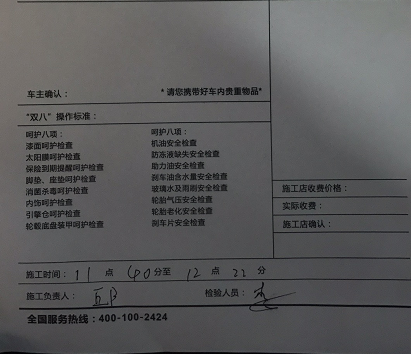 车主确认：
*请您携带好车内贵重物品*
“双八”操作标准：
呵护八项：
漆面呵护检查
太阳膜呵护检查
保险到期提醒呵护检查
脚垫、座垫呵护检查
消菌杀毒呵护检查
内饰呵护检查
引擎仓呵护检查
轮毂底盘装甲呵护检查
呵护八项：
机油安全检查
防冻液缺失安全检查
助力油安全检查
刹车油含水量安全检查
玻璃水及雨刷安全检查
轮胎气压安全检查
轮胎老化安全检查
刹车片安全检查
施工店收费价格：
实际收费：
施工店确认：
施工时间：11 点 40 分至 12 点 22 分
施工负责人：
检验人员：
全国服务热线：400-100-2424